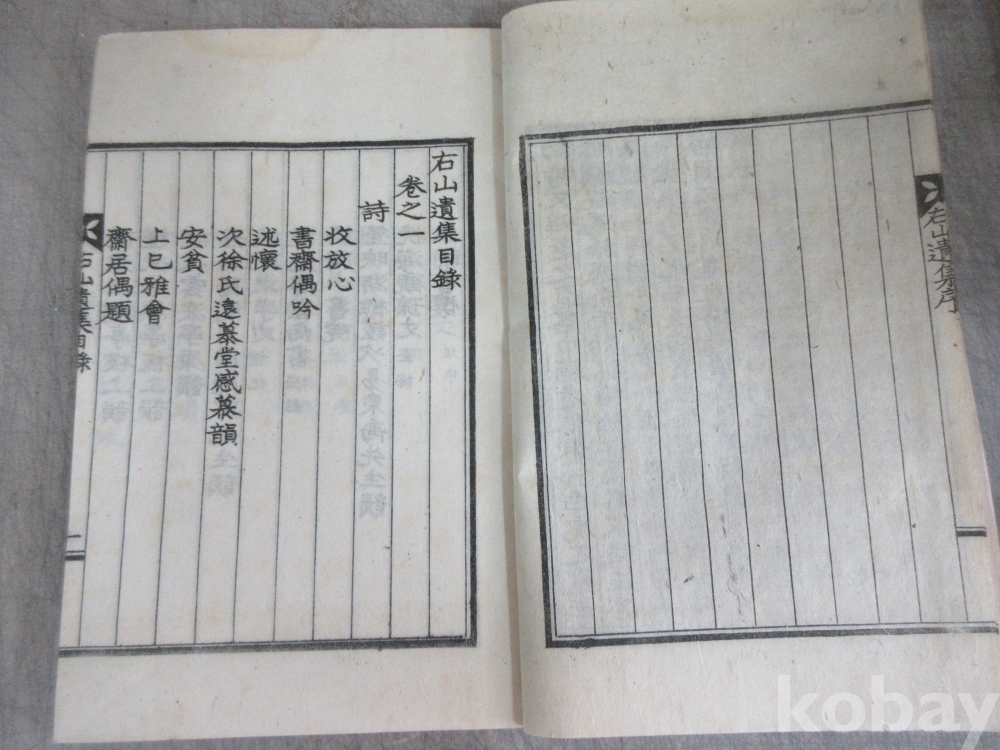 右山遺集序
右山遺集目錄
卷之一
詩
收放心
書齋偶吟
述懷
次徐氏遠慕堂感慕韻
安貧
上巳雅會
齋居偶題
右山遺集目錄
一
kobay